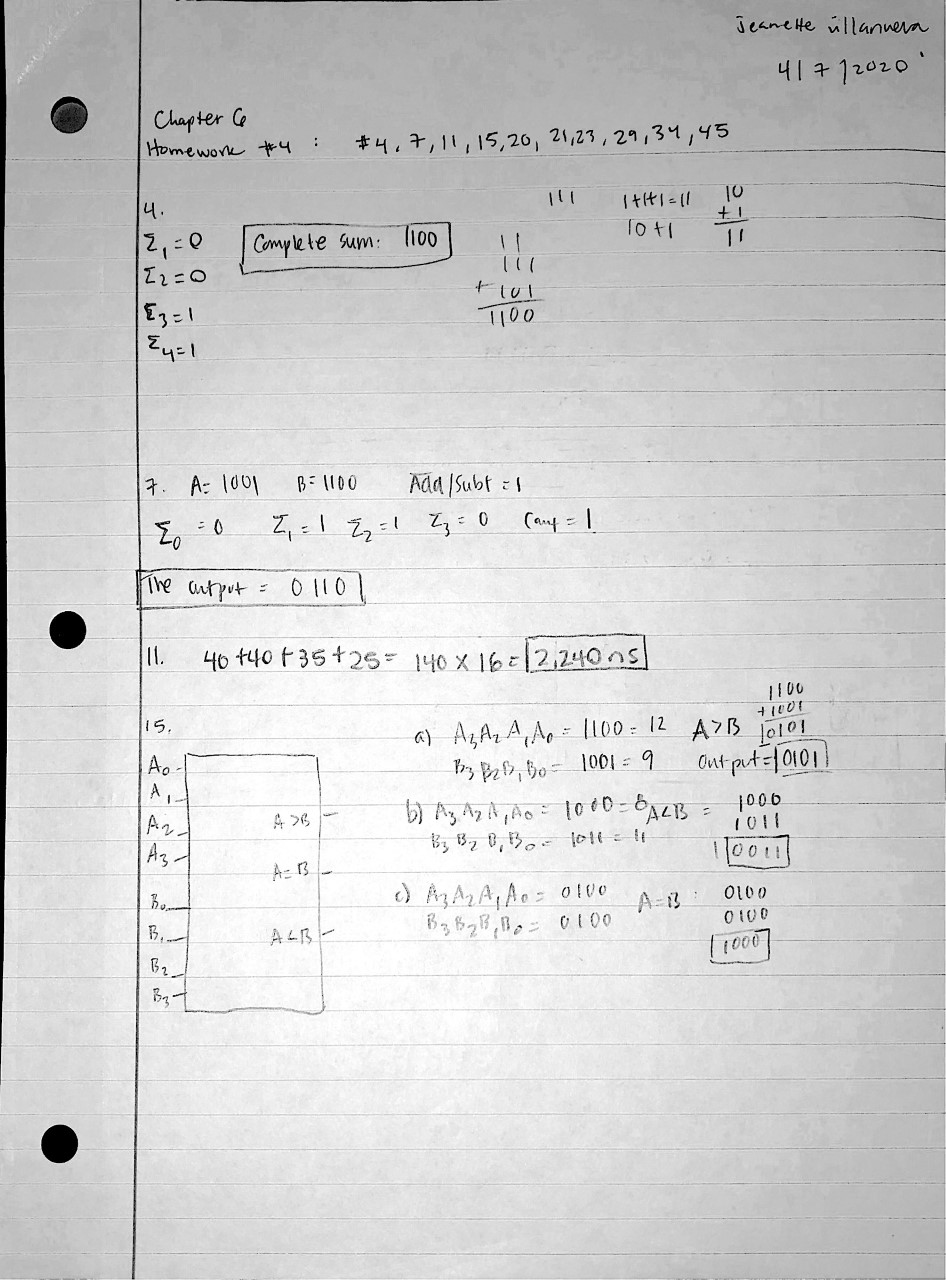 Jeanette Villanueva
4/7/2020
Chapter 6
Homework #4 : #4, 7, 11, 15, 20, 21, 23, 29, 34, 45
4.
Σ₁ = 0
Σ₂ = 0
Σ₃ = 1
Σ₄ = 1
Complete sum: 1100
11
111
+ 101
1100
111
1+1+1=11
10+1
10
+1
11
7. A= 1001 B= 1100 Add/Subt = 1
Σ₀ = 0 Σ₁ = 1 Σ₂ = 1 Σ₃ = 0 Carry = 1
The output = 0110
11. 40+40+35+25= 140 x 16 = 2,240 ns
15.
A₀
A₁
A₂
A₃
B₀
B₁
B₂
B₃
A>B
A=B
A<B
a) A₃A₂A₁A₀ = 1100 = 12 A>B
B₃B₂B₁B₀ = 1001 = 9
1100
+1001
10101
output = 10101
b) A₃A₂A₁A₀ = 1000 = 8 A<B =
B₃B₂B₁B₀ = 1011 = 11
1000
1011
10011
c) A₃A₂A₁A₀ = 0100 A=B :
B₃B₂B₁B₀ = 0100
0100
0100
1000